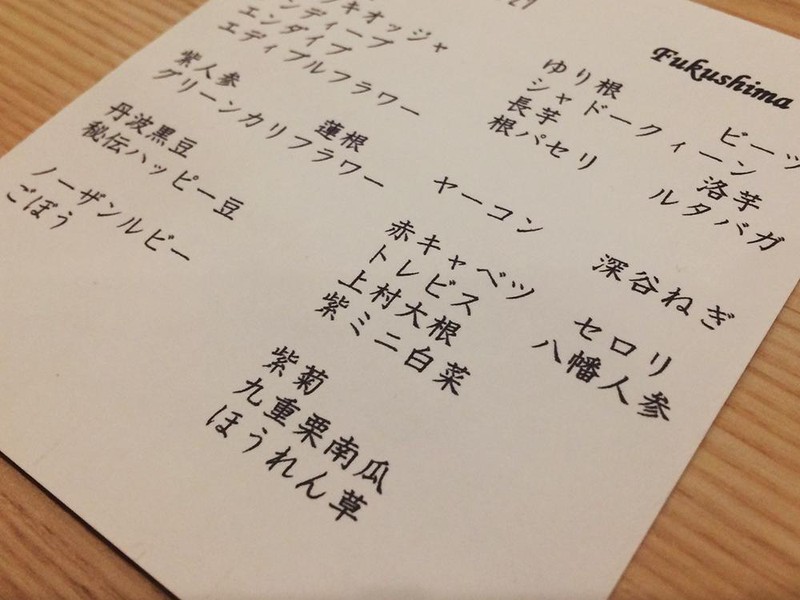 Fukushima
キオッジャ
ンディーブ
エンダイブ
エディブルフラワー
紫人参
グリーンカリフラワー
蓮根
丹波黒豆
秘伝ハッピー豆
ノーザンルビー
ごぼう
ゆり根
シャドークィーン
長芋
根パセリ
ヤーコン
赤キャベツ
トレビス
上村大根
紫ミニ白菜
紫菊
九重栗南瓜
ほうれん草
ビーツ
洛芋
ルタバガ
深谷ねぎ
セロリ
八幡人参